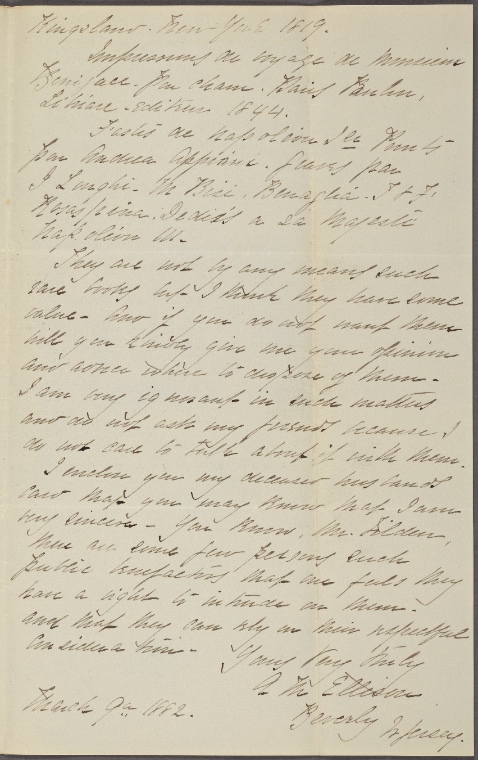 Kingsland. New-York 1819.
Impressions de voyage de Monsieur
Boniface. Par cham. Paris Paulin,
Libraire-editeur 1844.
Fastes de Napoléon Ier Peints
par Andrea Appiani. Graves par
J Longhi. M Bisi. Benaglia. J & F.
Rosaspina. Dediés a sa Majesté
Napoléon III.
They are not by any means such
rare books but I think they have some
value - And if you do not want them
will you kindly give me your opinion
and advice where to dispose of them -
I am very ignorant in such matters
and do not ask my friends because I
do not care to talk about it with them.
I enclose you my deceased husband's
card that you may know that I am
very sincere - You know, Mr. Tilden,
there are some few persons such
public benefactors that one feels they
have a right to intrude on them -
and that they can rely on their respectful
consideration -
Yours Very truly
A M Ellison
Beverly N Jersey.
March 9th 1882.